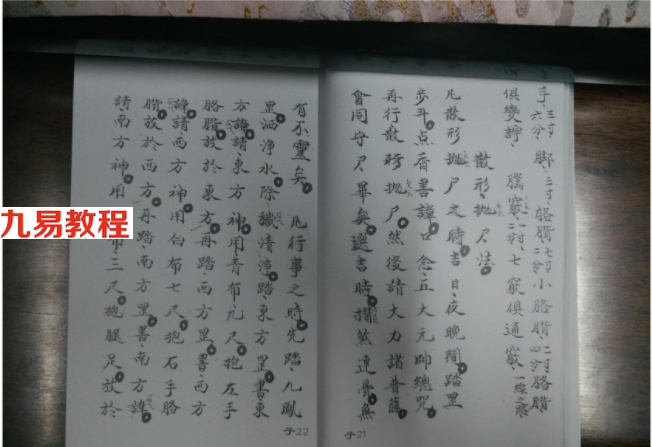 手、三寸六分、脚、三寸胳膊七寸二分小胳膊、二寸四分胳膊
俱變諍、騰竅、一寸二分七竅俱通竅、
散形抛尸法
凡散形抛尸之時吉日、夜晚間踏罡
步斗点香書諱口念五大元帥總咒
再行散形抛尸然後請大力諸菩薩
會同守尸畢矣選吉時攢然連骨無
子21
有不靈矣 凡行事之時先踏九鳳
罡洒淨水除穢清淨踏東方罡書東
方諱請東方神用青布九尺抱左手
胳膊放於東方再踏西方罡書西方
諱請西方神用白布七尺抱右手胳
膊放於西方再踏南方罡書南方諱
請南方神用布三尺抱腿足放於
子22
九易教程